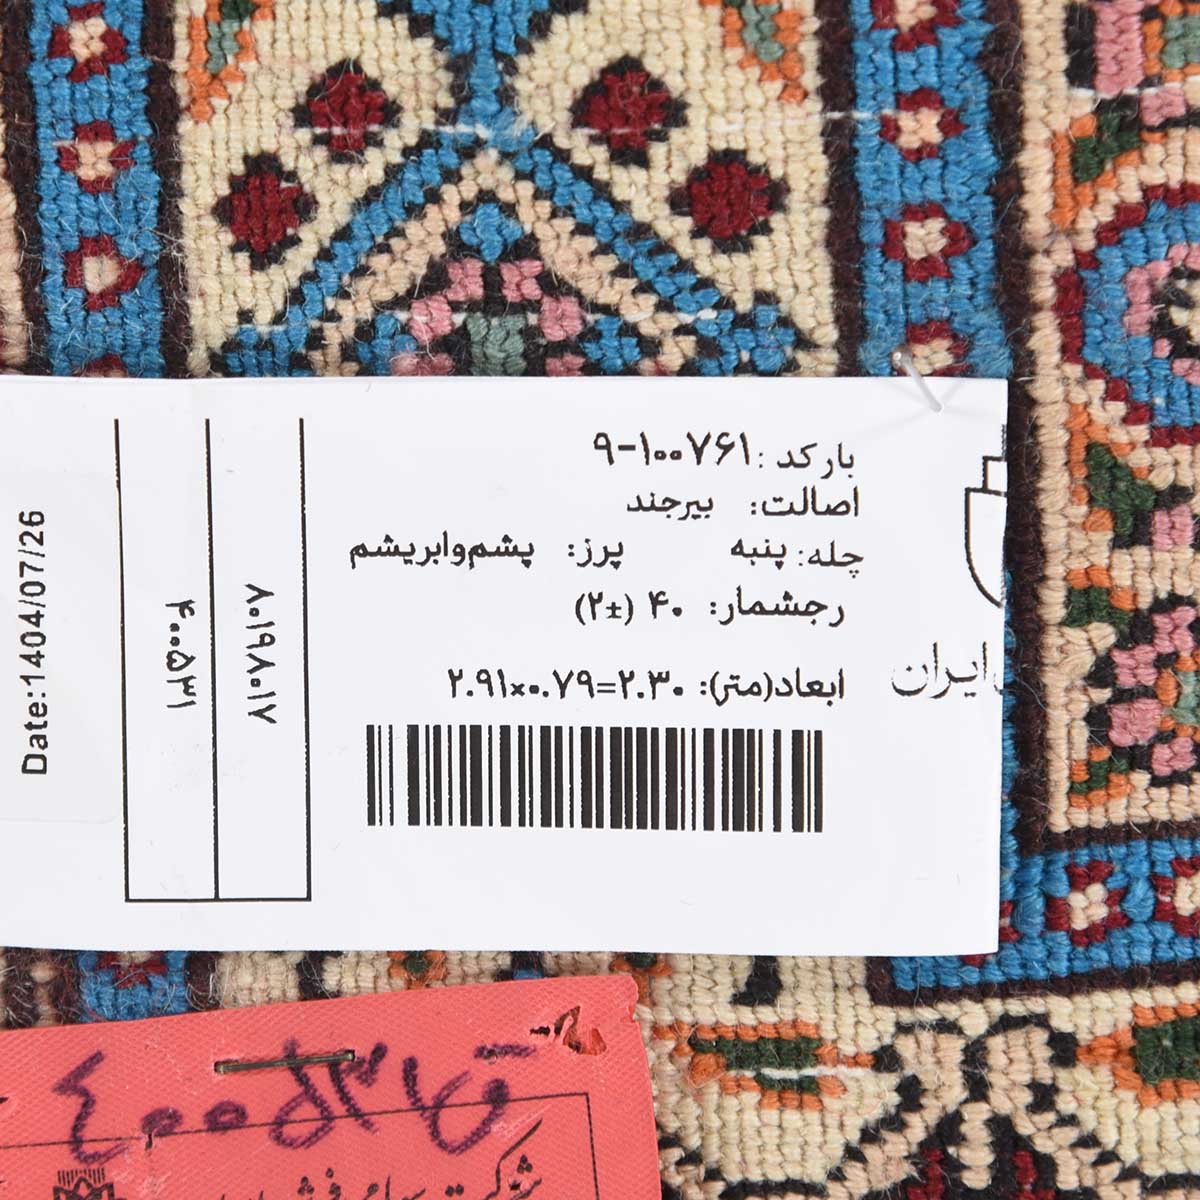 بارکد: ۹-۱۰۰۷۶۱
اصالت: بیرجند
چله: پنبه پرز: پشم‌وابریشم
رجشمار: ۴۰ (±۲)
ابعاد(متر): ۲.۹۱×۰.۷۹=۲.۳۰
ایران
۸۰۱۹۸۰۱۷
۴۰۰۵۳۱
Date:1404/07/26
شرکت سهامی فرش